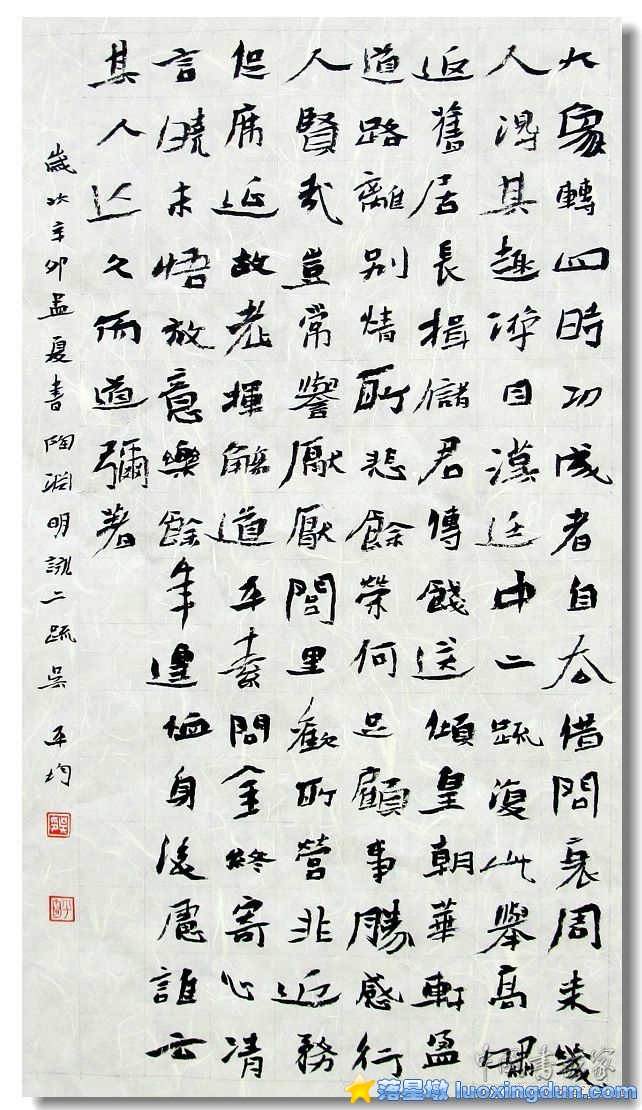 大象轉四時功成者自去借問衰周来幾
人得其趣游目漢廷中二疏復此舉高嘯
返舊居長揖儲君傅餞送傾皇朝華軒盈
道路離別情所悲餘榮何足顧事勝感行
人賢哉豈常譽厭厭閭里歡所營非近務
促席延故老揮觴道平素問金終寄心清
言曉未悟放意樂餘年遑恤身後慮誰云
其人亡久而道彌著
歲次辛卯孟夏書陶渊明詠二疏吳平均
落星墩 luoxingdun.com